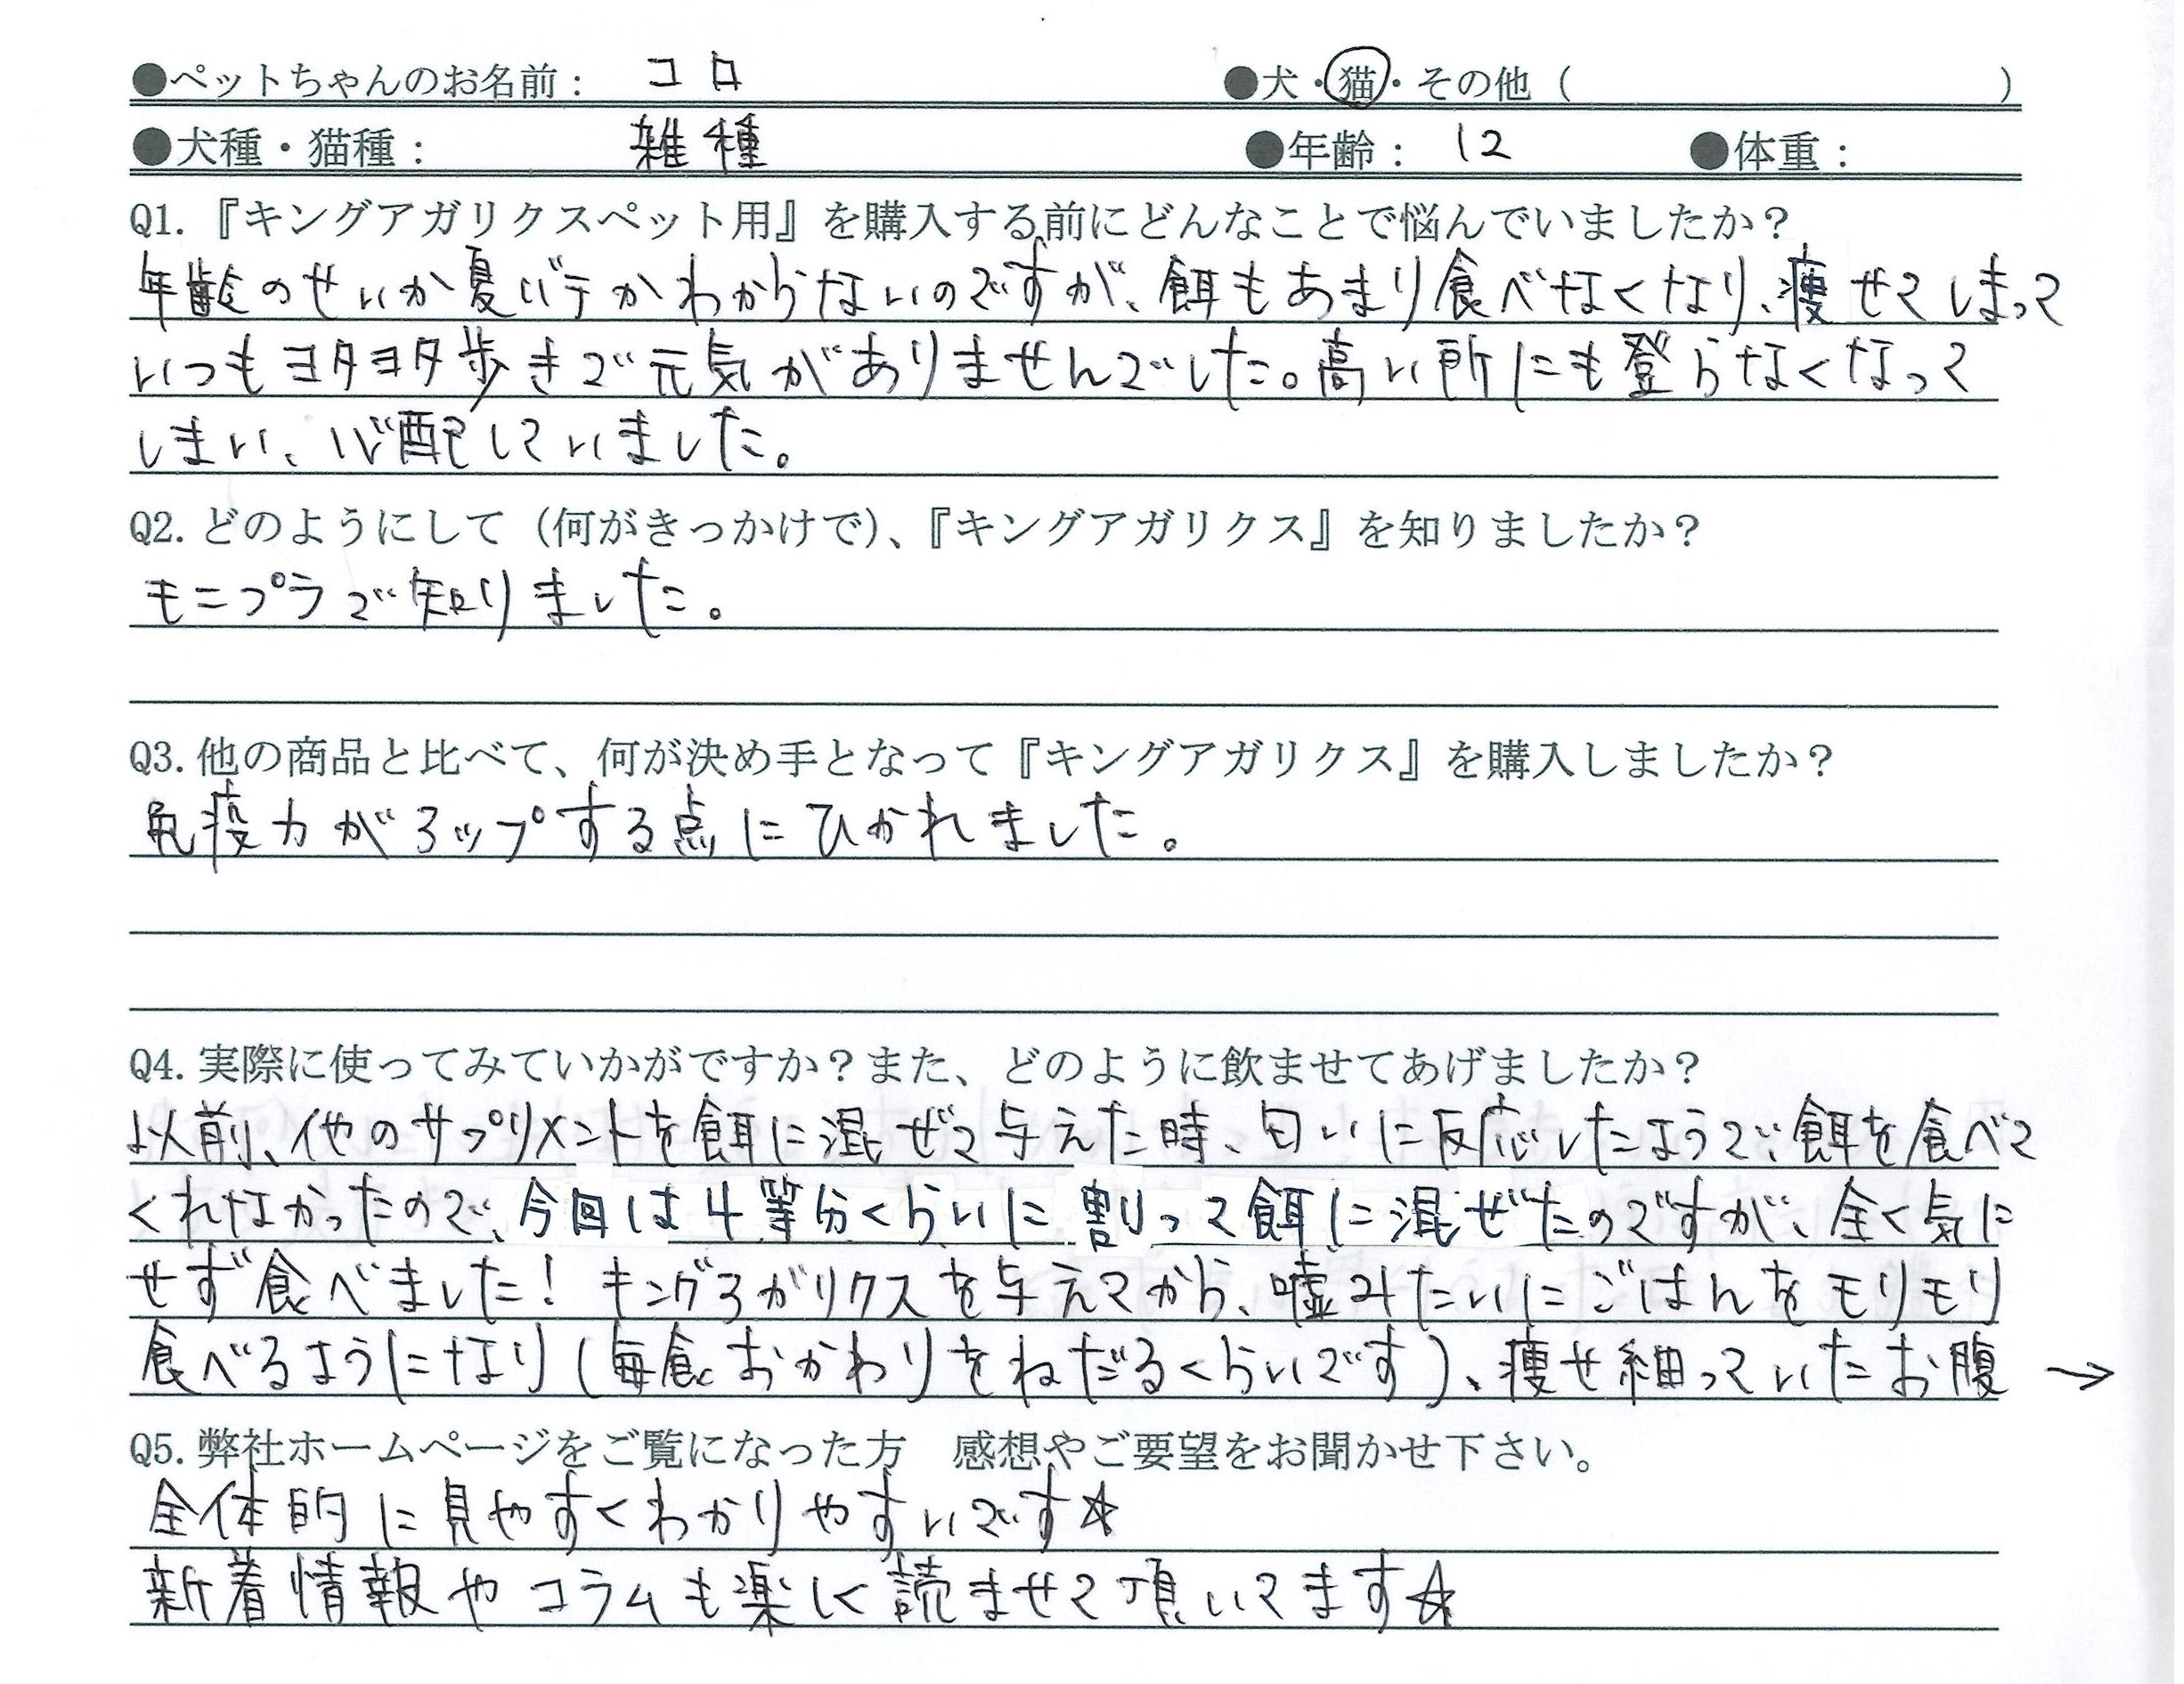 ●ペットちゃんのお名前： コロ ●犬・猫・その他（ ）
●犬種・猫種： 雑種 ●年齢： 12 ●体重：
Q1.『キングアガリクスペット用』を購入する前にどんなことで悩んでいましたか？
年齢のせいか夏バテかわからないのですが、餌もあまり食べなくなり、痩せてしまって
いつもヨタヨタ歩きで元気がありませんでした。高い所にも登らなくなって
しまい、心配していました。
Q2.どのようにして（何がきっかけで）、『キングアガリクス』を知りましたか？
モニプラで知りました。
Q3.他の商品と比べて、何が決め手となって『キングアガリクス』を購入しましたか？
免疫力がアップする点にひかれました。
Q4.実際に使ってみていかがですか？また、どのように飲ませてあげましたか？
以前、他のサプリメントを餌に混ぜて与えた時、匂いに反応したようで、餌を食べて
くれなかったので、今回は4等分くらいに割って餌に混ぜたのですが、全く気に
せず食べました！ キングアガリクスを与えてから、嘘みたいにごはんをモリモリ
食べるようになり（毎食おかわりをねだるくらいです）、痩せ細っていたお腹 →
Q5.弊社ホームページをご覧になった方　感想やご要望をお聞かせ下さい。
全体的に見やすくわかりやすいです☆
新着情報やコラムも楽しく読ませて頂いてます☆